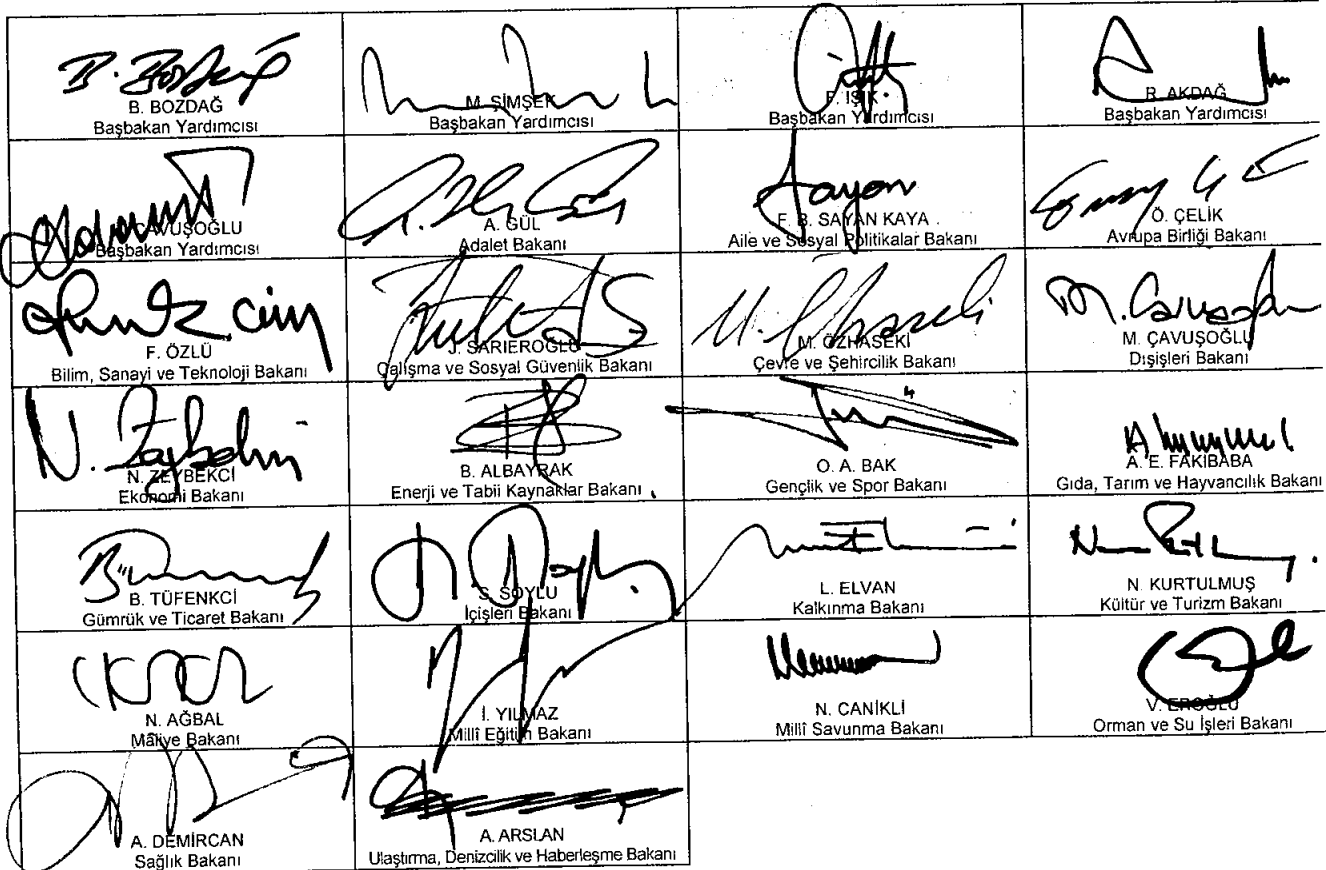 B. BOZDAĞ
Başbakan Yardımcısı
M. ŞİMŞEK
Başbakan Yardımcısı
F. IŞIK
Başbakan Yardımcısı
R. AKDAĞ
Başbakan Yardımcısı
AVUŞOĞLU
Başbakan Yardımcısı
A. GÜL
Adalet Bakanı
F. B. SAYAN KAYA
Aile ve Sosyal Politikalar Bakanı
Ö. ÇELİK
Avrupa Birliği Bakanı
F. ÖZLÜ
Bilim, Sanayi ve Teknoloji Bakanı
J. SARIEROĞLU
Çalışma ve Sosyal Güvenlik Bakanı
M. ÖZHASEKİ
Çevre ve Şehircilik Bakanı
M. Çavuşoğlu
M. ÇAVUŞOĞLU
Dışişleri Bakanı
N. ZEYBEKCİ
Ekonomi Bakanı
B. ALBAYRAK
Enerji ve Tabii Kaynaklar Bakanı
O. A. BAK
Gençlik ve Spor Bakanı
A. E. FAKIBABA
Gıda, Tarım ve Hayvancılık Bakanı
B. TÜFENKCİ
Gümrük ve Ticaret Bakanı
S. SOYLU
İçişleri Bakanı
L. ELVAN
Kalkınma Bakanı
N. KURTULMUŞ
Kültür ve Turizm Bakanı
N. AĞBAL
Maliye Bakanı
İ. YILMAZ
Millî Eğitim Bakanı
N. CANİKLİ
Millî Savunma Bakanı
V. EROĞLU
Orman ve Su İşleri Bakanı
A. DEMİRCAN
Sağlık Bakanı
A. ARSLAN
Ulaştırma, Denizcilik ve Haberleşme Bakanı